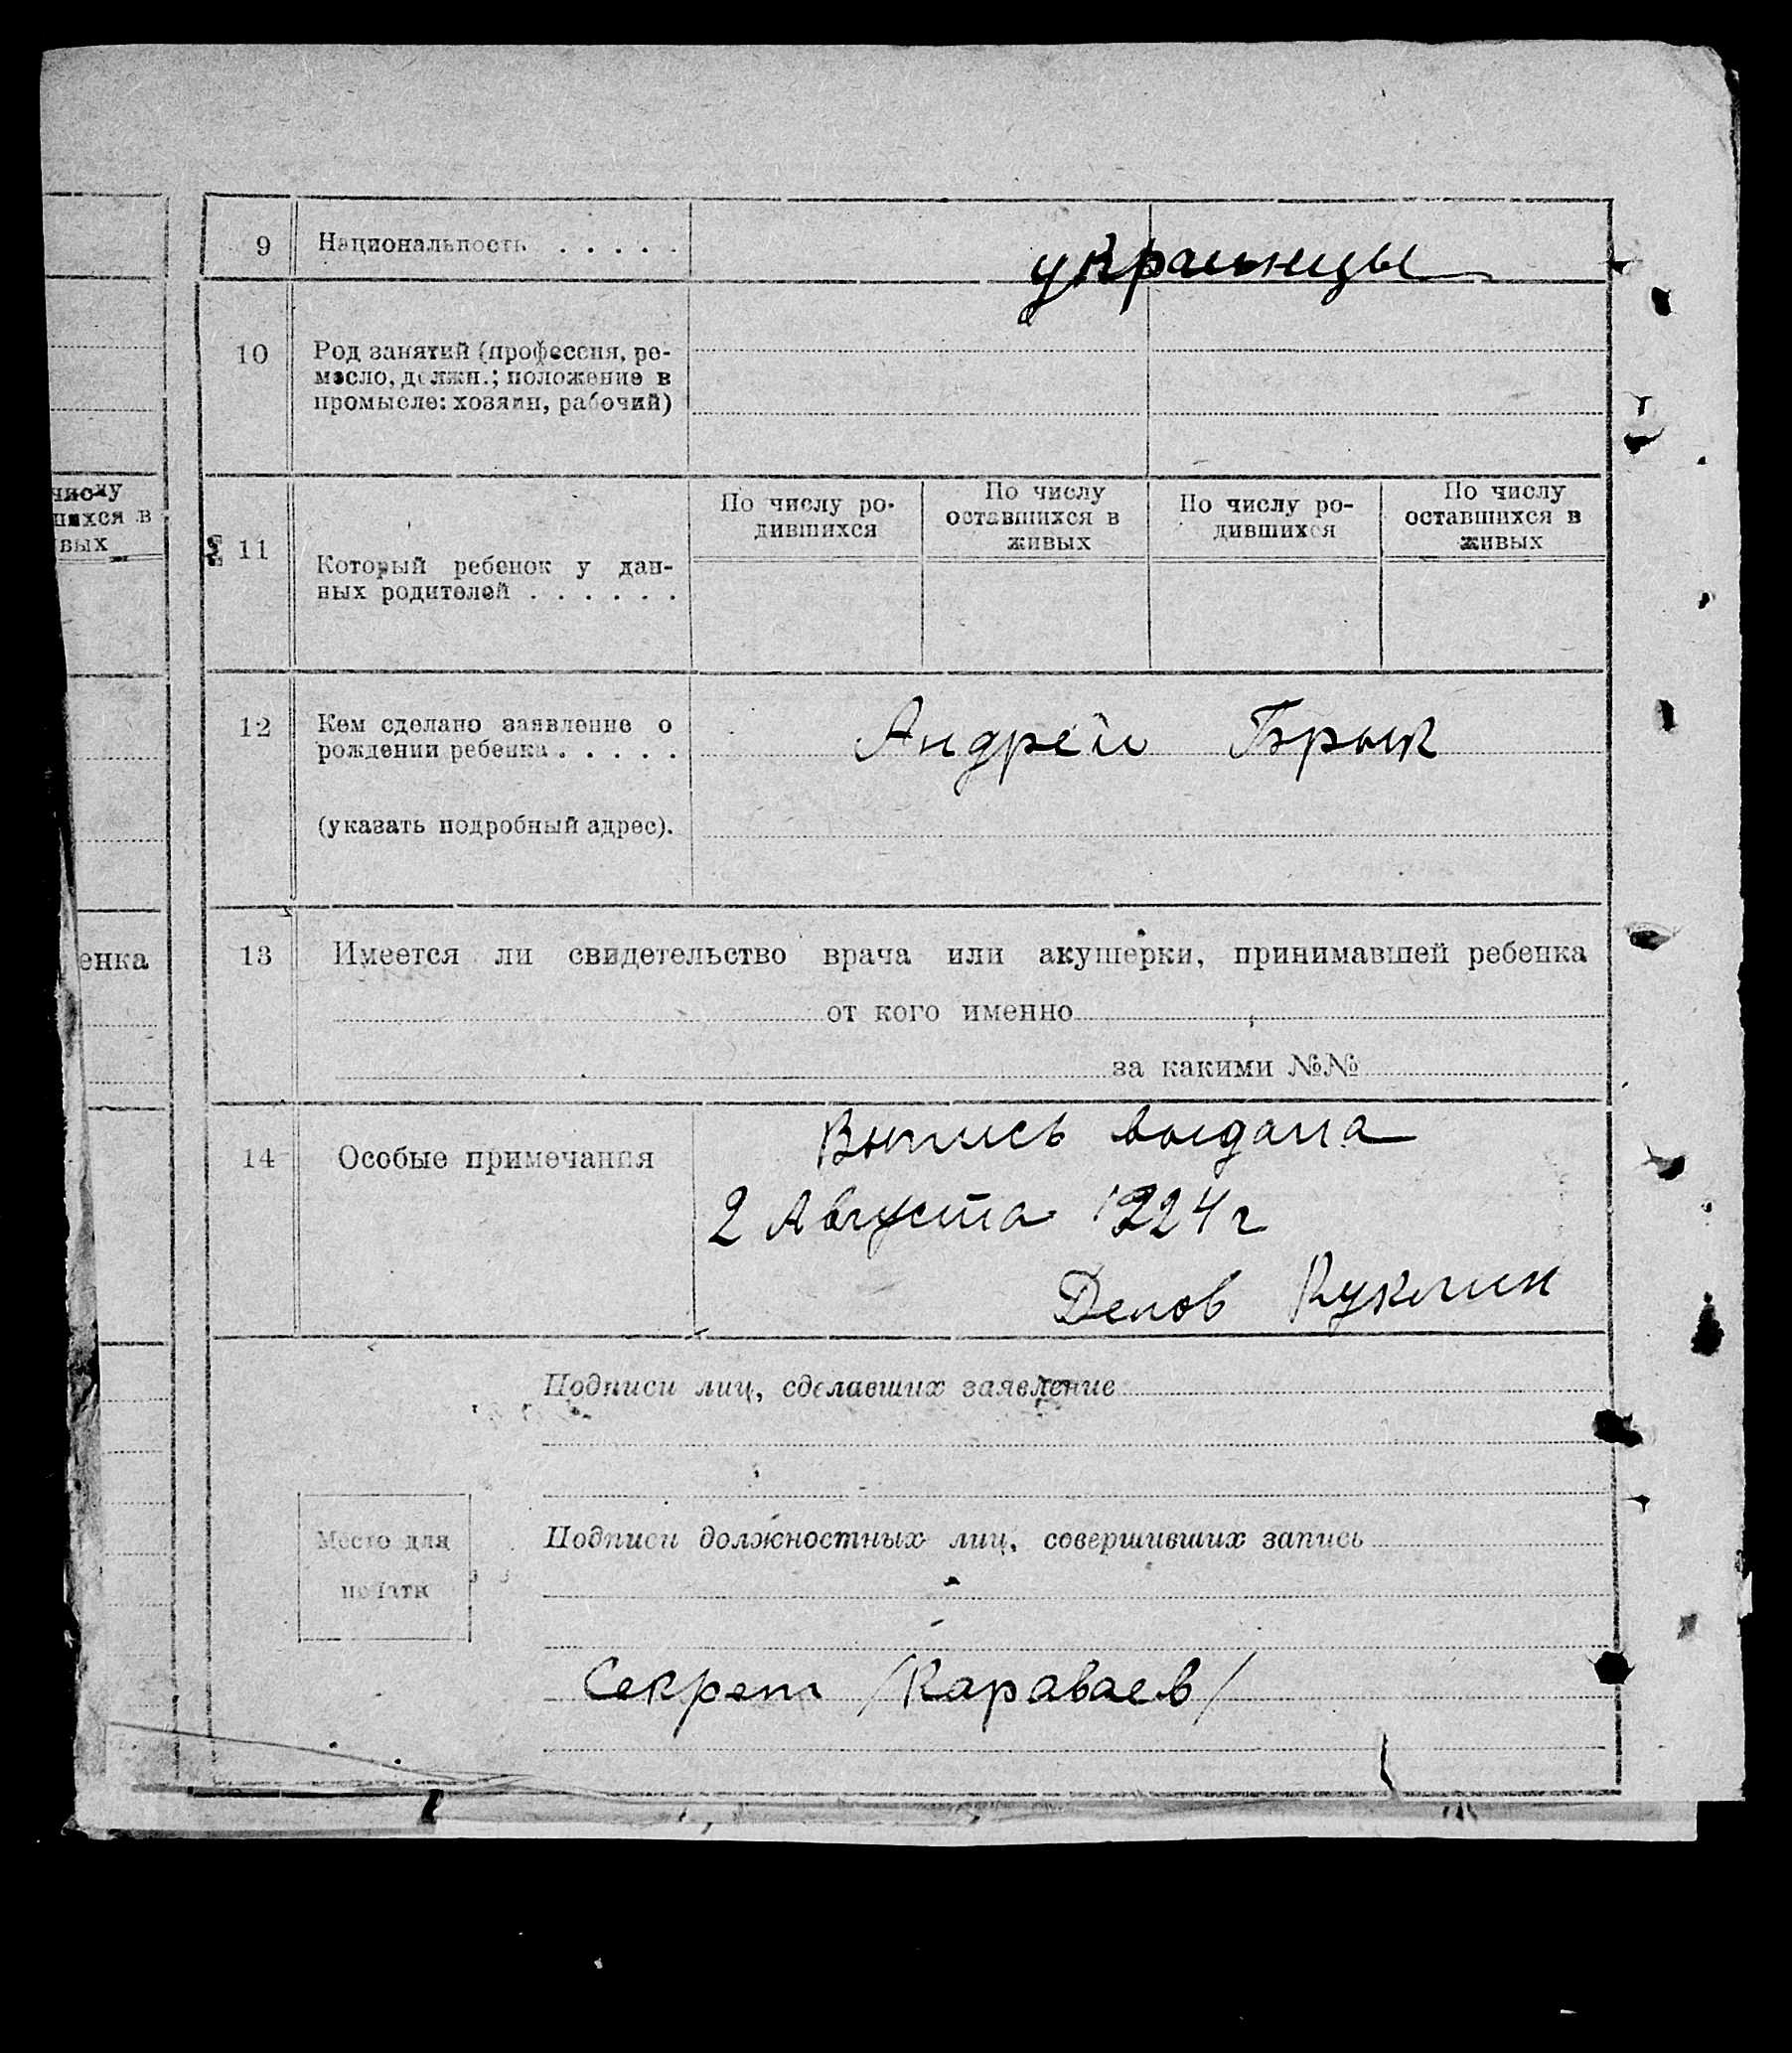 9 Национальность . . . . .
украинцы
10 Род занятий (профессия, ре-
месло, должн.; положение в
промысле: хозяин, рабочий)
числу
шихся в
вых
11 Который ребенок у дан-
ных родителей . . . . . .
По числу ро-
дившихся
По числу
оставшихся в
живых
По числу ро-
дившихся
По числу
оставшихся в
живых
12 Кем сделано заявление о
рождении ребенка . . . . .
(указать подробный адрес).
Андрей Брык
енка
13 Имеется ли свидетельство врача или акушерки, принимавшей ребенка
от кого именно
за какими №№
14 Особые примечания
Выпись выдана
2 Августа 1924 г
Делов Куклин
Подписи лиц, сделавших заявление
Место для
печати
Подписи должностных лиц, совершивших запись
Секрет /Караваев/